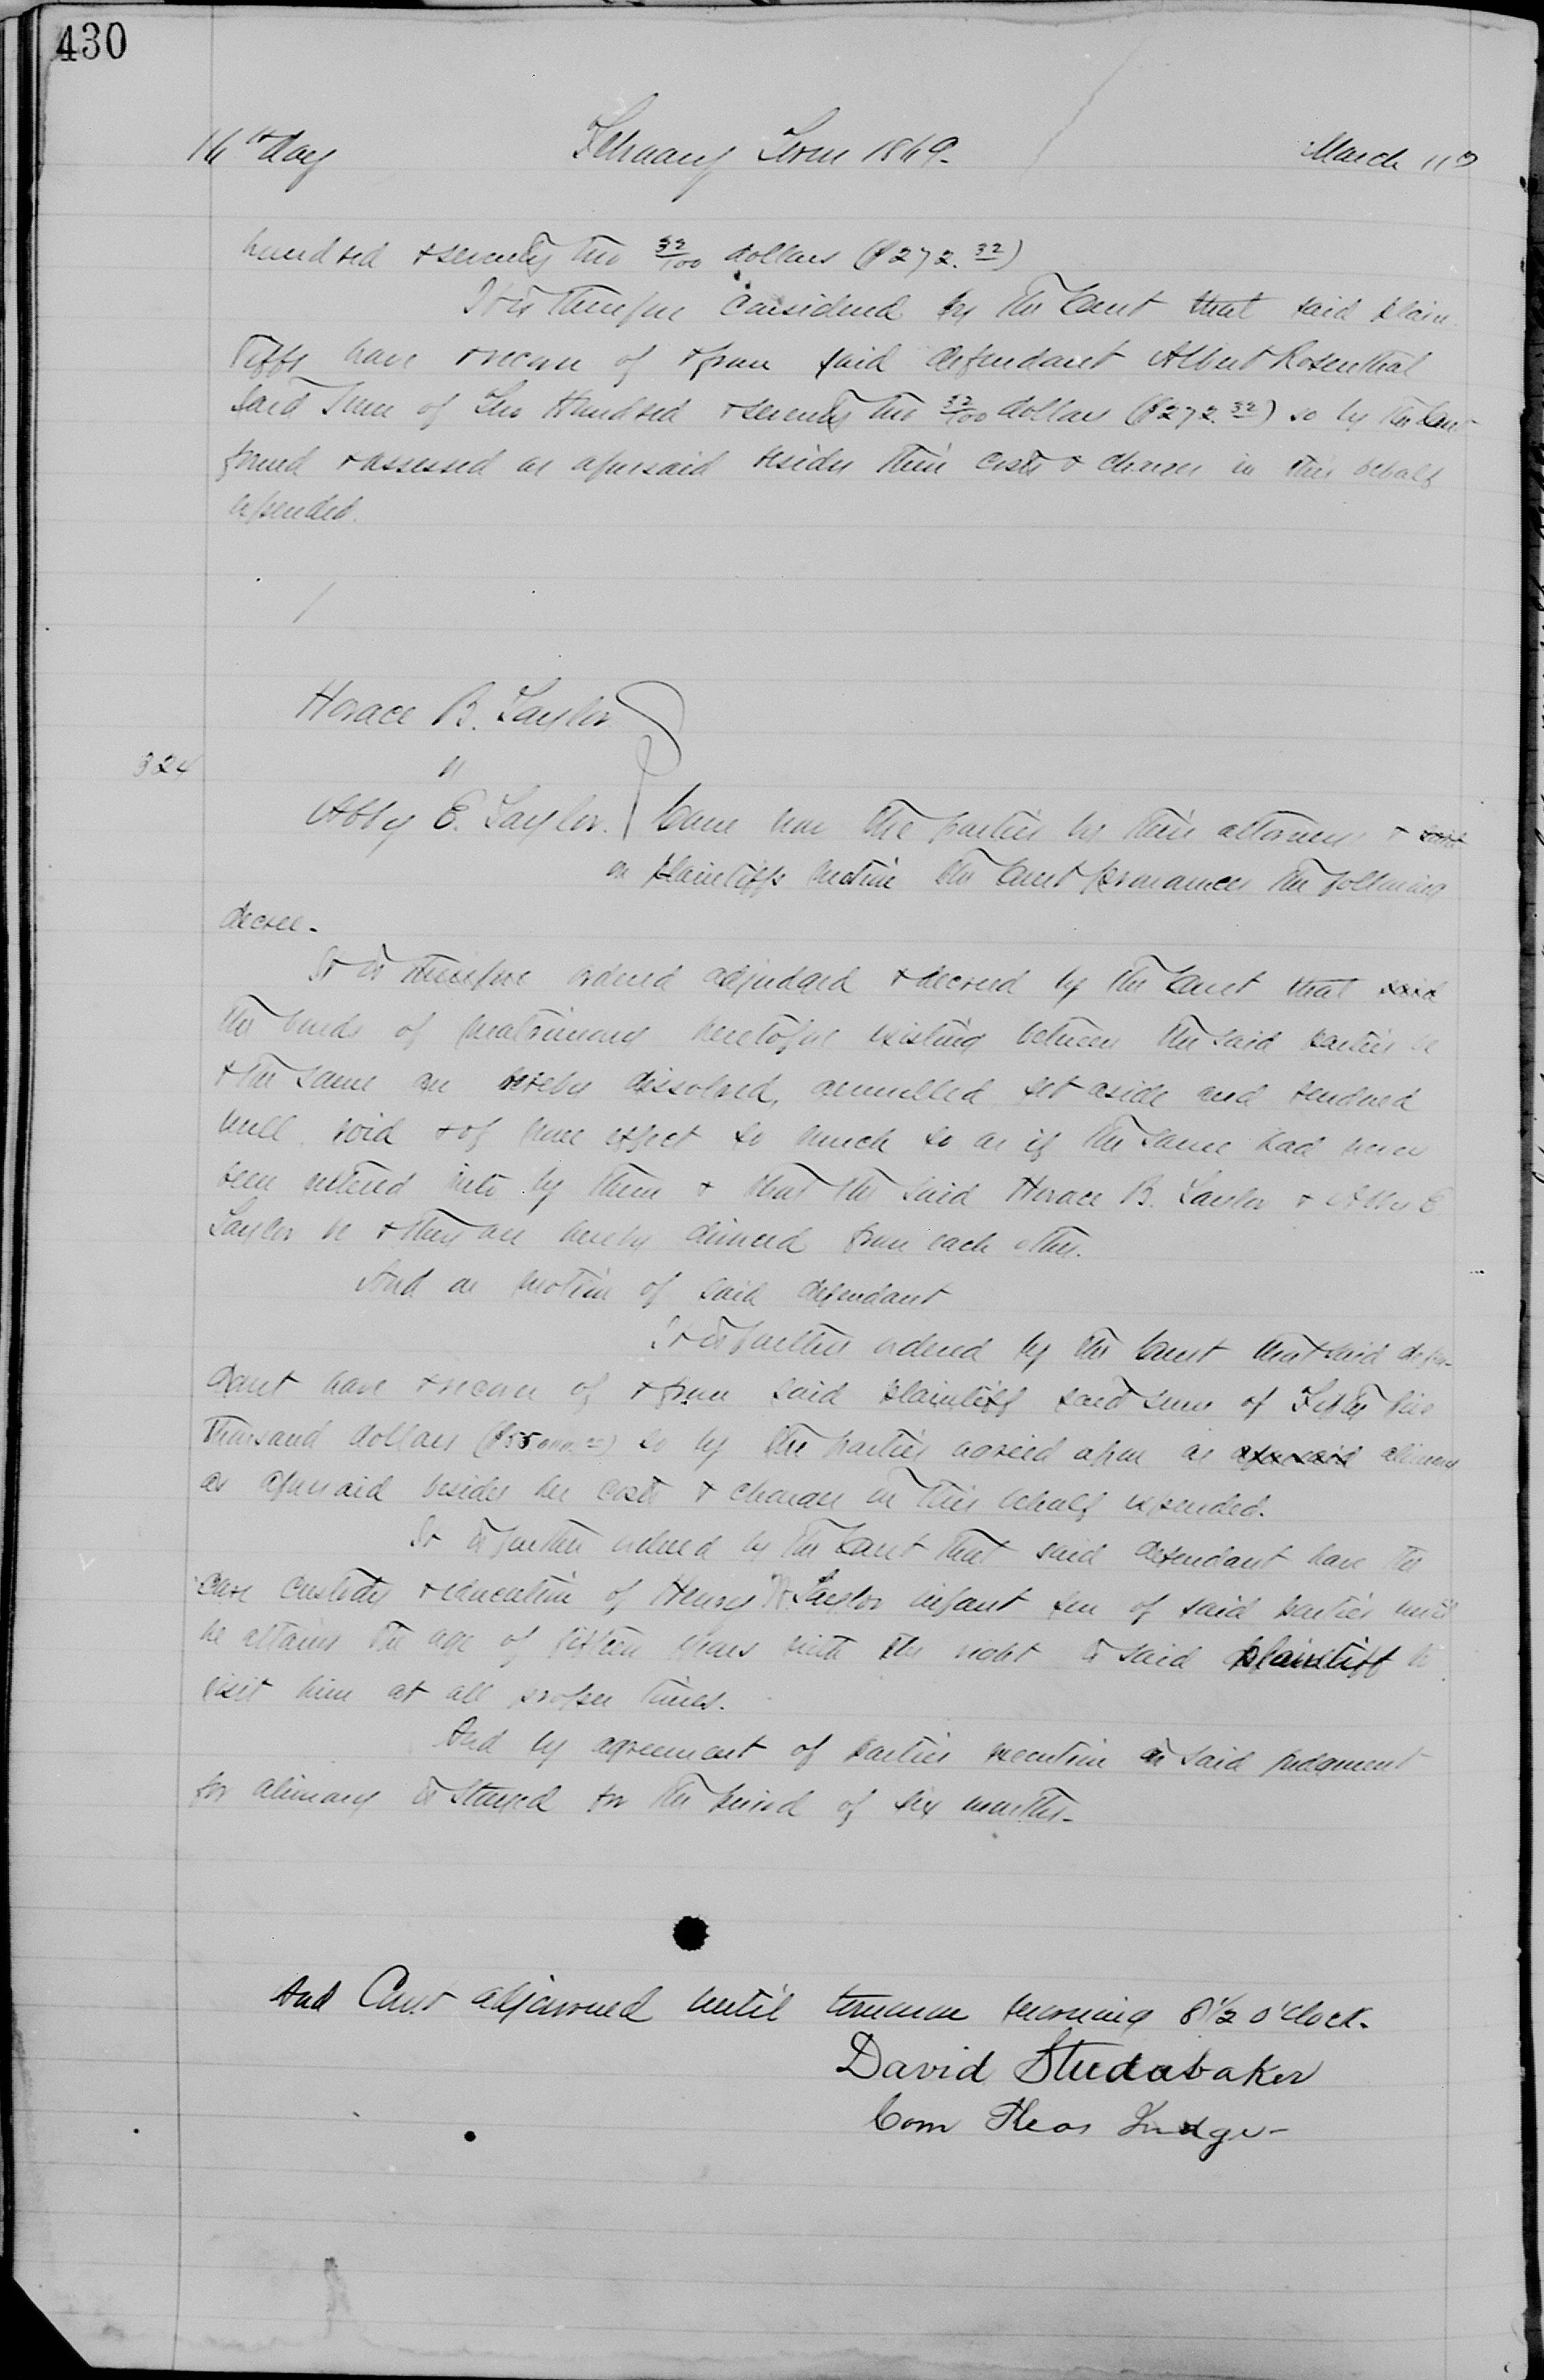 430
16th day February Term 1869. March 11th
hundred & seventy two 32/100 dollars ($272.32)
It is therefore considered by the Court that said plain
tiffs have & recover of & from said defendant Albert Rosenthal
said sum of Two Hundred & seventy two 32/100 dollars ($272.32) so by the Court
found & assessed as aforesaid besides their costs & charges in this behalf
expended.
Horace B. Taylor
324 vs
Abby E. Taylor. Came now the parties by their attorneys & said
on plaintiffs motion the Court pronounces the following
decree.
It is therefore ordered adjudged & decreed by the Court that said
the bonds of matrimony heretofore existing between the said parties be
& the same are hereby dissolved, annulled set aside and rendered
null void & of none effect so much so as if the same had never
been entered into by them & that the said Horace B. Taylor & Abby E
Taylor be & they are hereby divorced from each other.
And on motion of said defendant
It is further ordered by the Court that said defen-
dant have & recover of & from said plaintiff said sum of Fifty five
thousand dollars ($55000.00) so by the parties agreed upon as aforesaid alimony
as aforesaid besides her costs & charges in this behalf expended.
It is further ordered by the Court that said defendant have the
care custody & education of Henry Taylor infant son of said parties until
he attains the age of fifteen years with the right to said plaintiff to
visit him at all proper times.
And by agreement of parties execution on said judgment
for alimony is stayed for the period of six months.
And Court adjourned until tomorrow morning 8 1/2 o'clock.
David Studabaker
Com Pleas Judge-